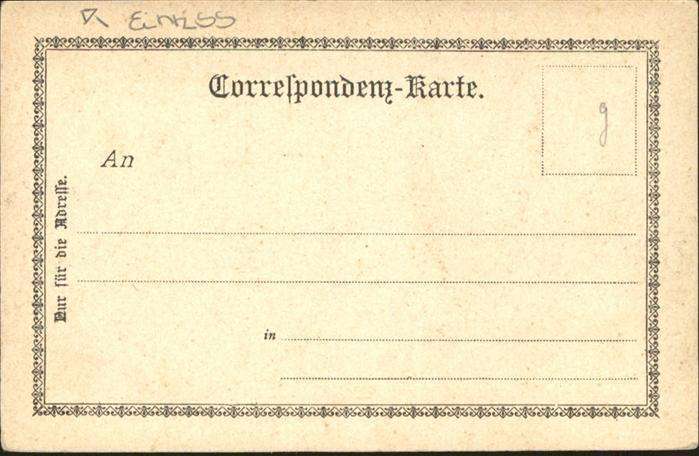 Correspondenz-Karte.
g
An
Nur für die Adresse.
in